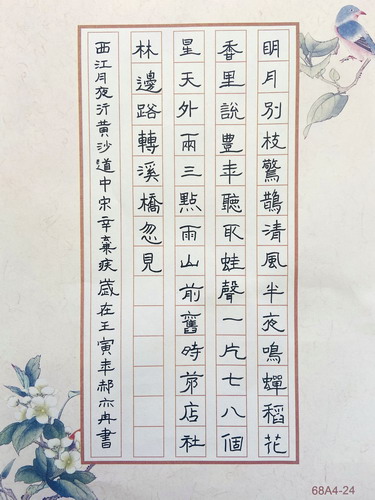 明月別枝驚鵲清風半夜鳴蟬稻花
香里說豊年聽取蛙聲一片七八個
星天外兩三點雨山前舊時茆店社
林邊路轉溪橋忽見
西江月夜行黃沙道中宋辛棄疾歲在壬寅年郝亦冉書
68A4-24